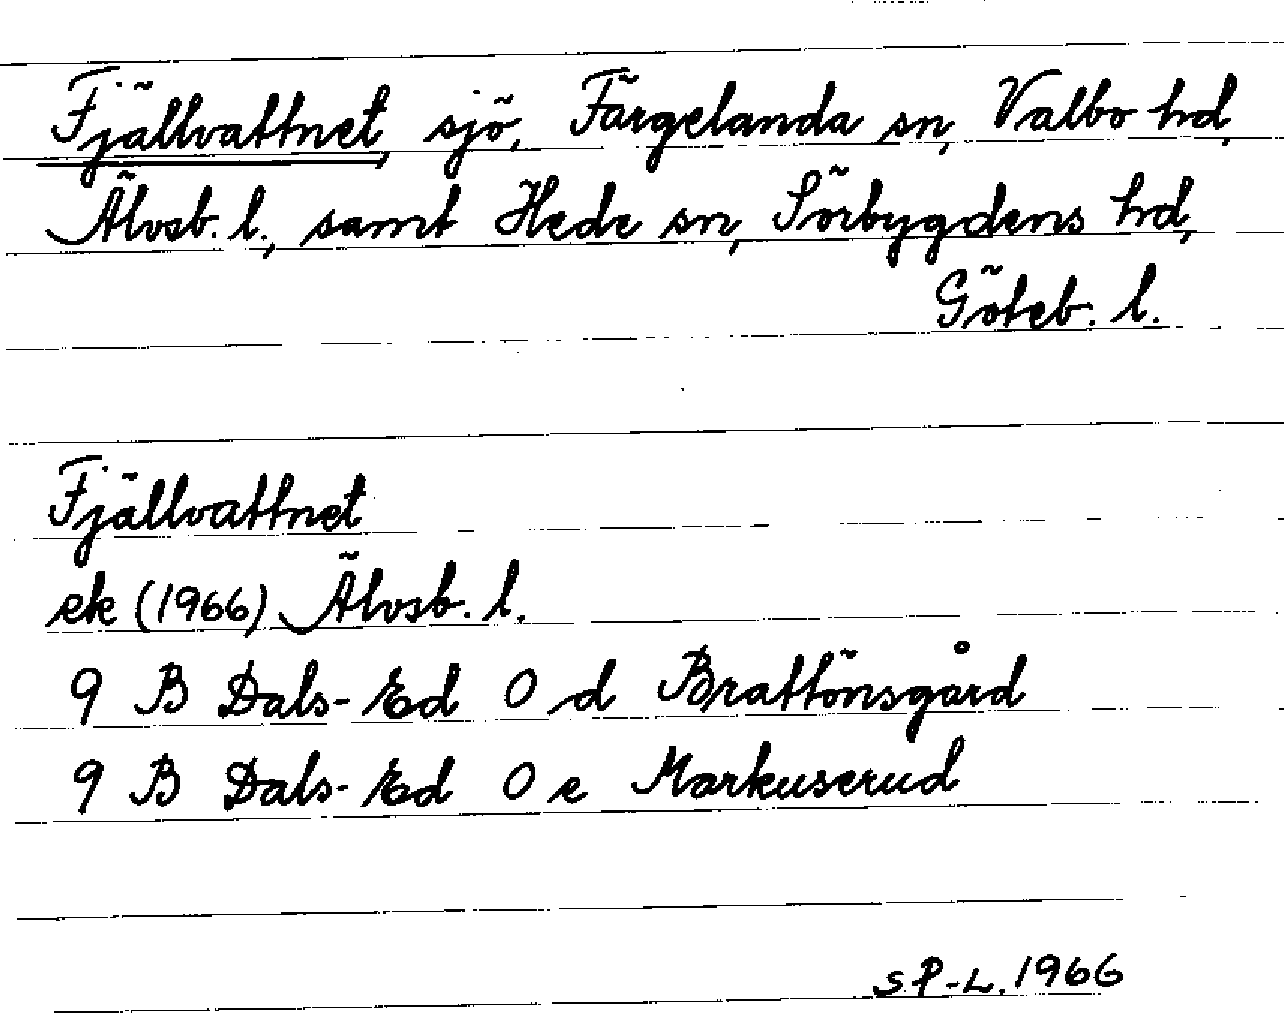 Fjällvattnet, sjö, Färgelanda sn, Valbo hd,
Älvsb. l., samt Hede sn, Sörbygdens hd,
Göteb. l.
Fjällvattnet
ek (1966) Älvsb. l.
9 B Dals-Ed O d Brattönsgård
9 B Dals-Ed O e Markuserud
S.P-L. 1966